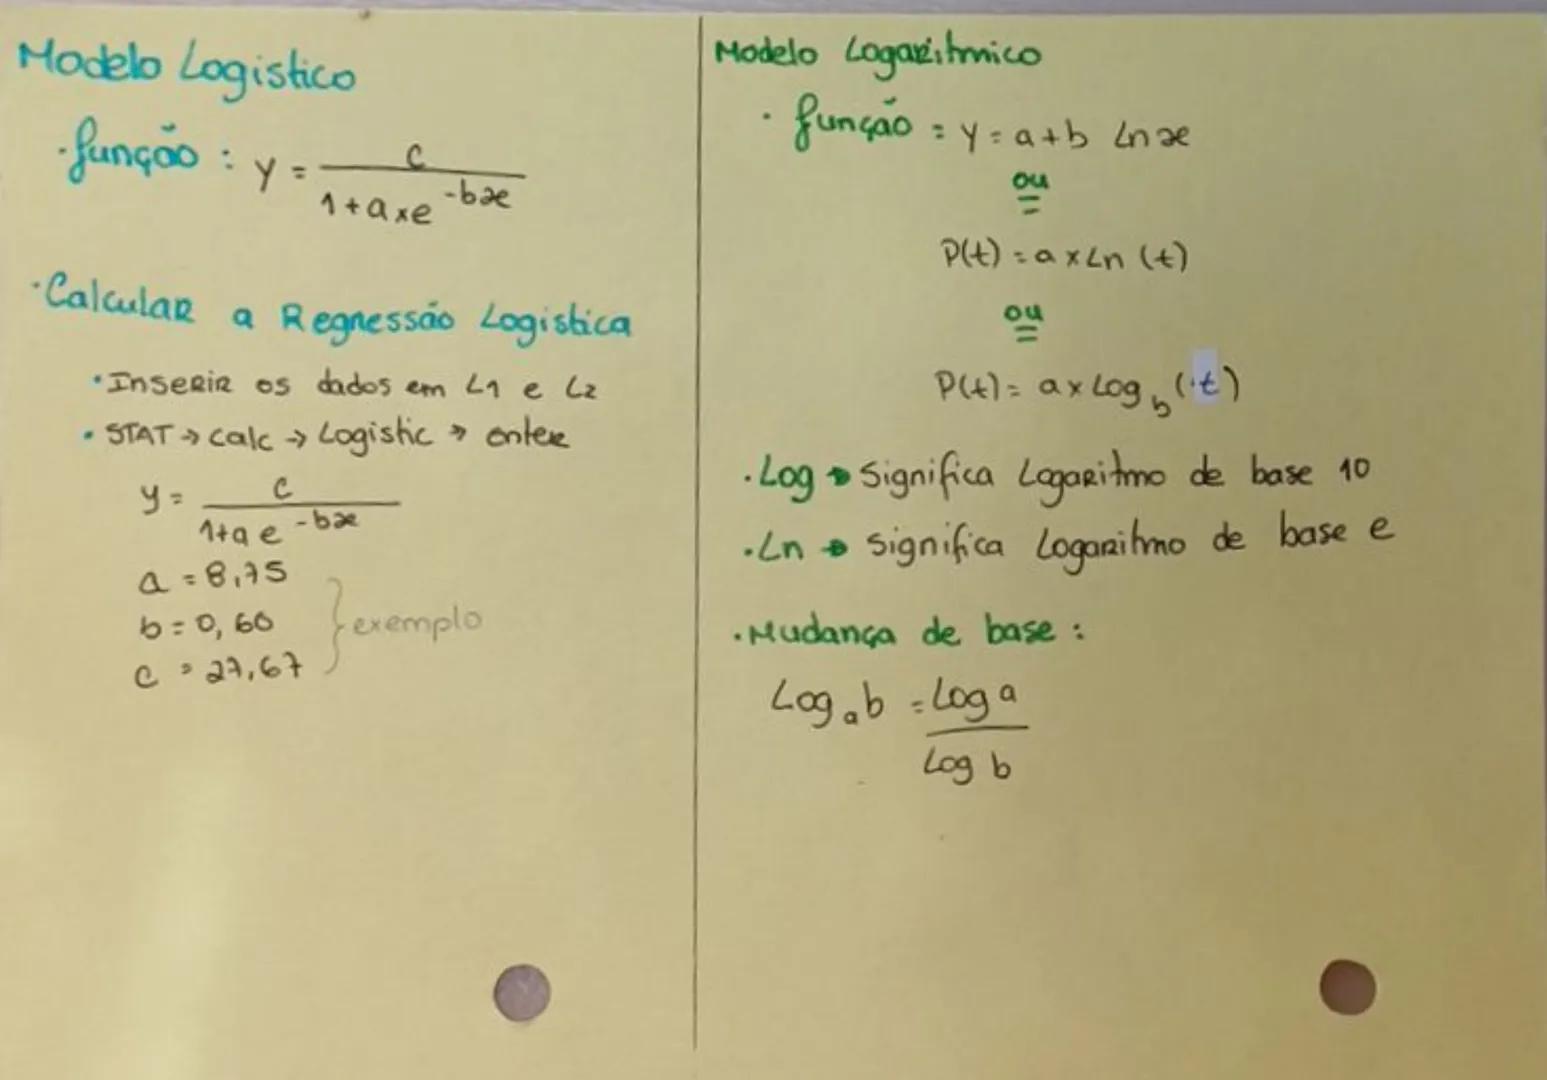 Modelo Logistico
· função : y = c
1 + a x e -bx
· Calcular a Regressão Logistica
· Inserir os dados em L1 e L2
· STAT → calc → Logistic → enter
y = c
1+a e -bx
a = 8,75
b = 0,60
c = 27,67
} exemplo
Modelo Logaritmico
· função = y = a + b Ln x
ou
P(t) = a x Ln (t)
ou
P(t) = a x Log b (t)
· Log → Significa Logaritmo de base 10
· Ln → Significa Logaritmo de base e
· Mudança de base :
Log a b = Log a
Log b